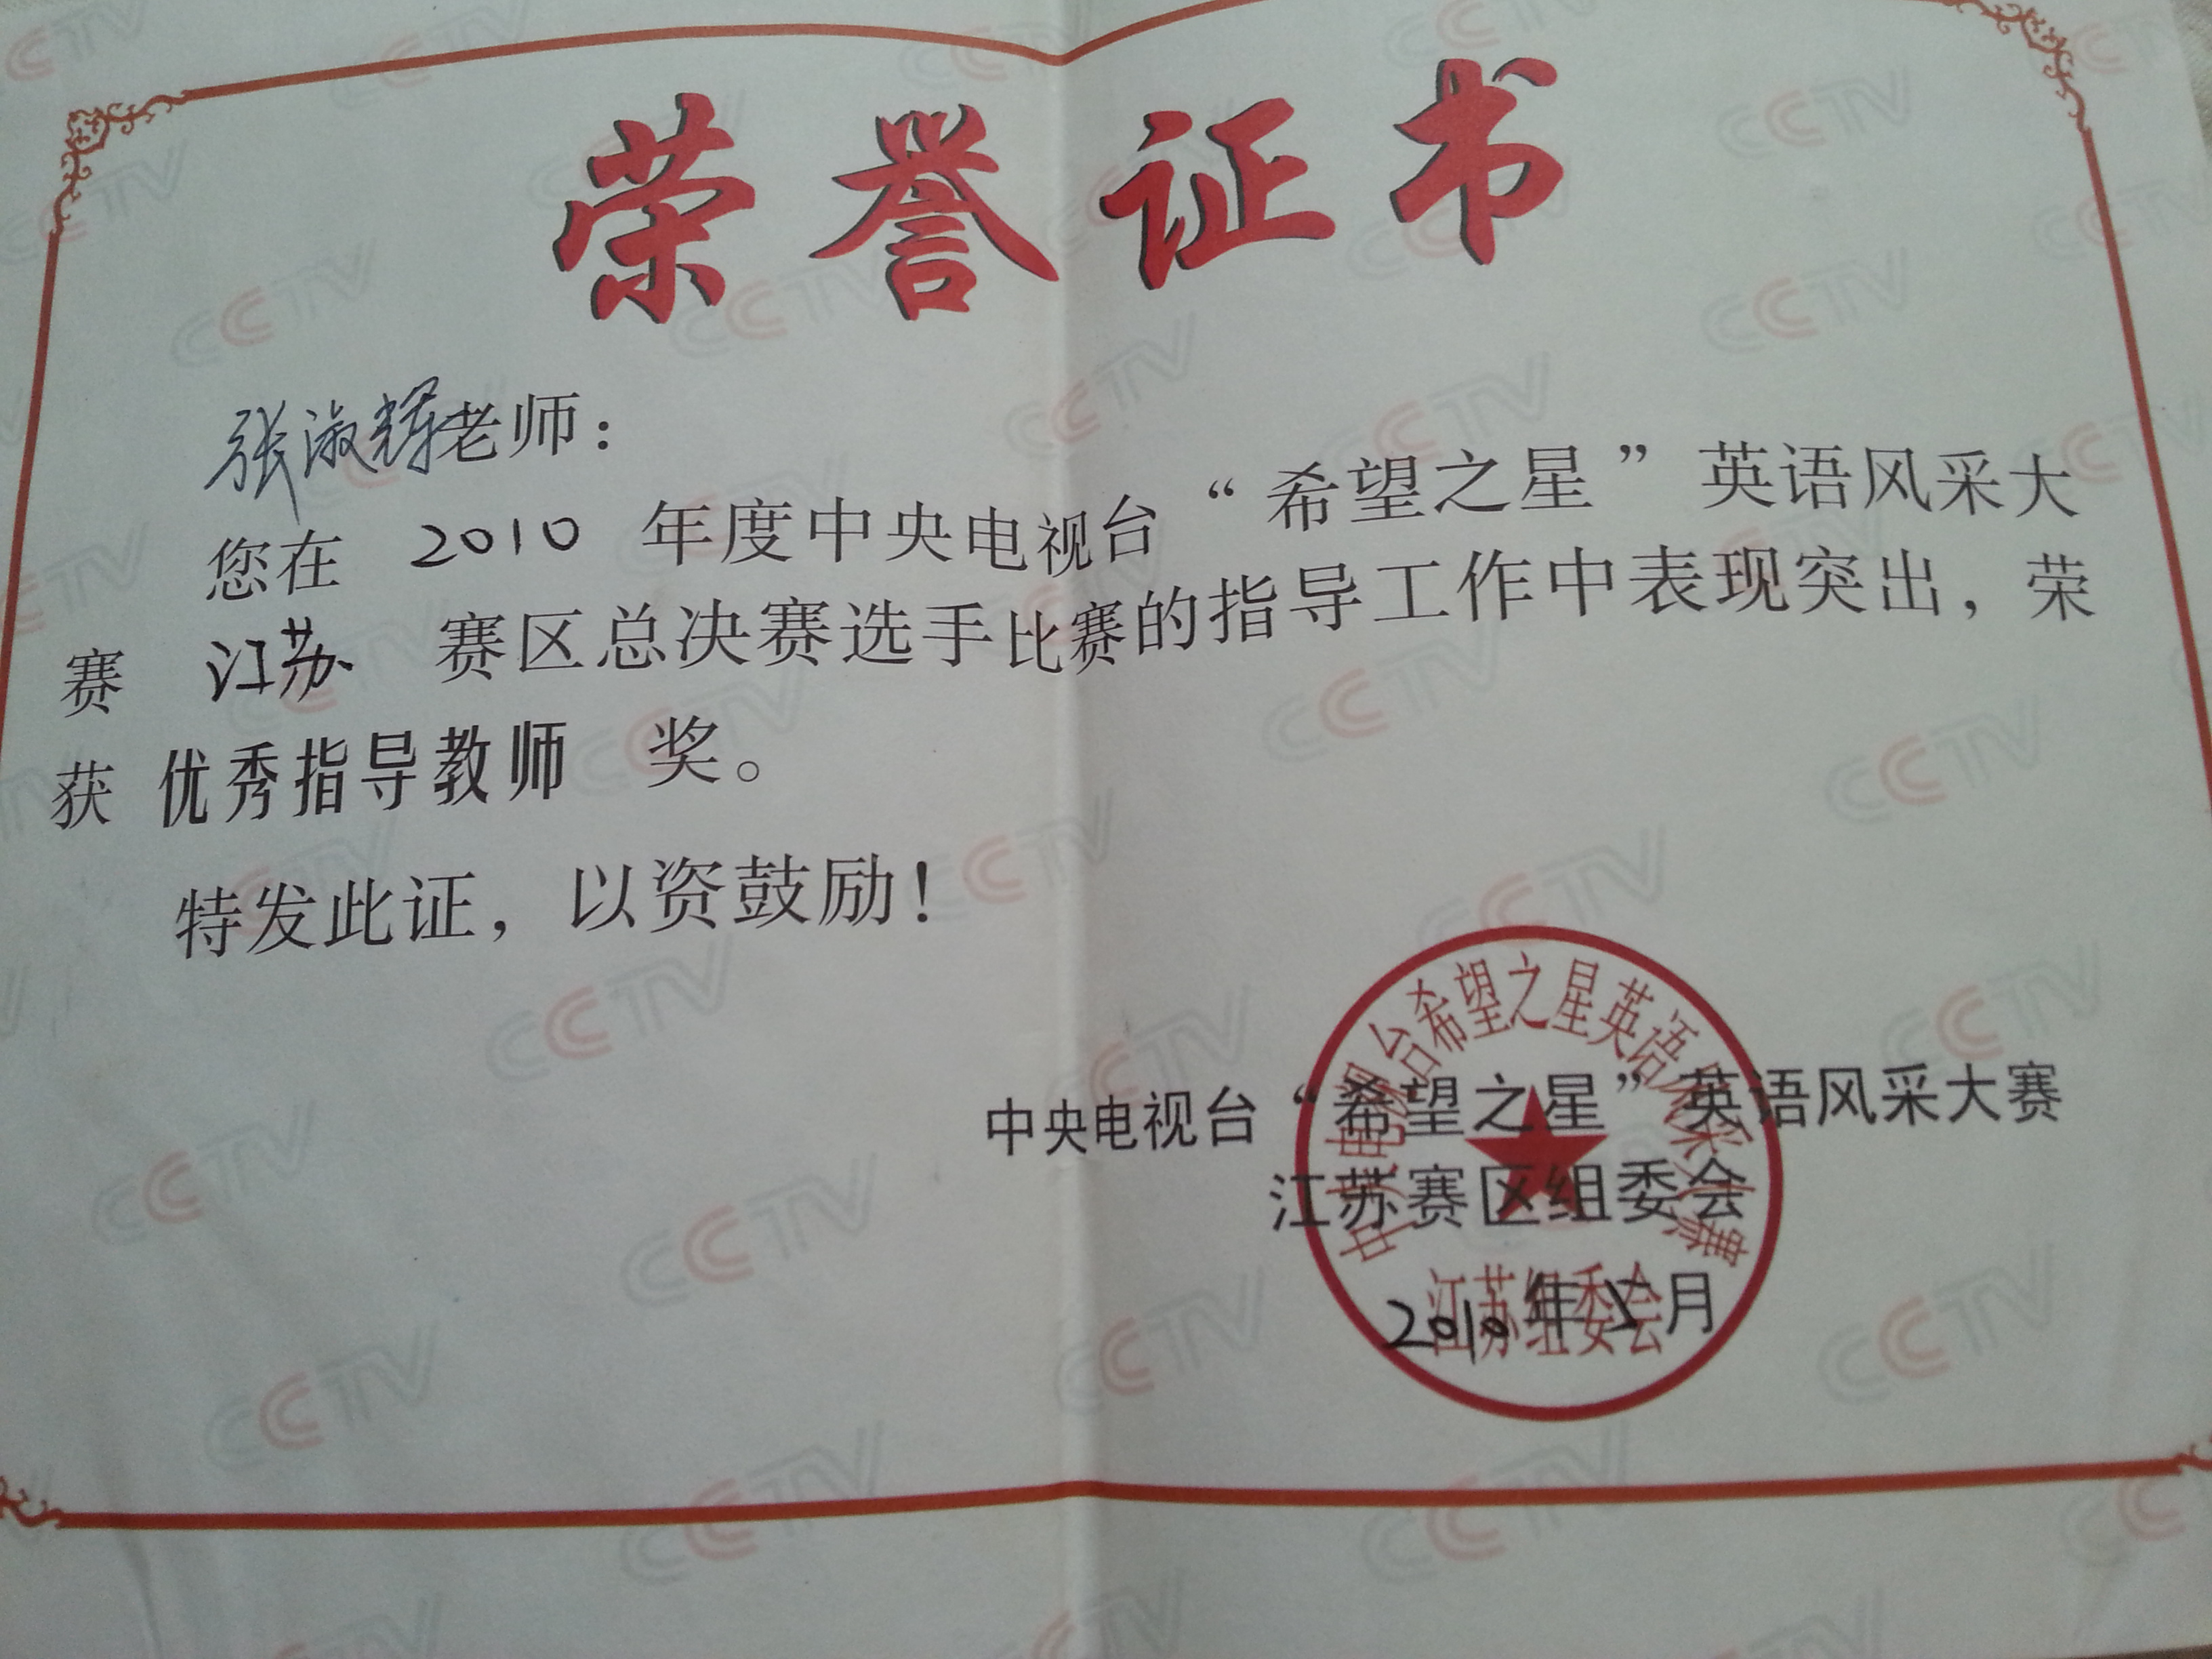 荣誉证书
张淑辉老师：
您在 2010 年度中央电视台“希望之星”英语风采大
赛 江苏 赛区总决赛选手比赛的指导工作中表现突出，荣
获 优秀指导教师 奖。
特发此证，以资鼓励！
中央电视台“希望之星”英语风采大赛
江苏赛区组委会
2010年 月
中央电视台希望之星英语风采大赛
江苏组委会
CCTV